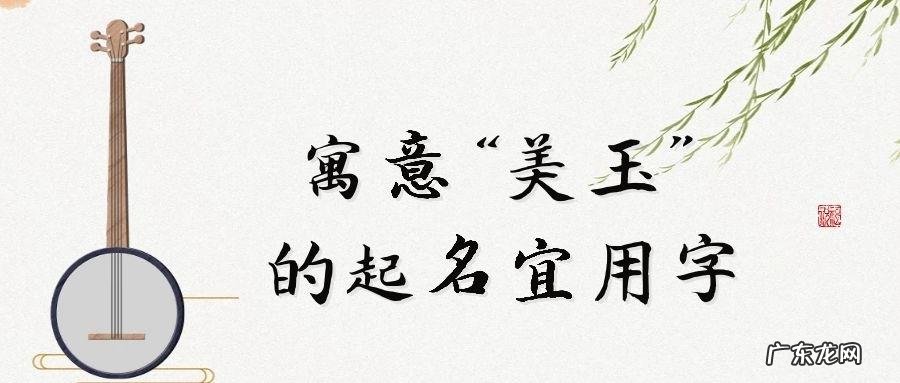 寓意“美玉”
的起名宜用字
广东龙网